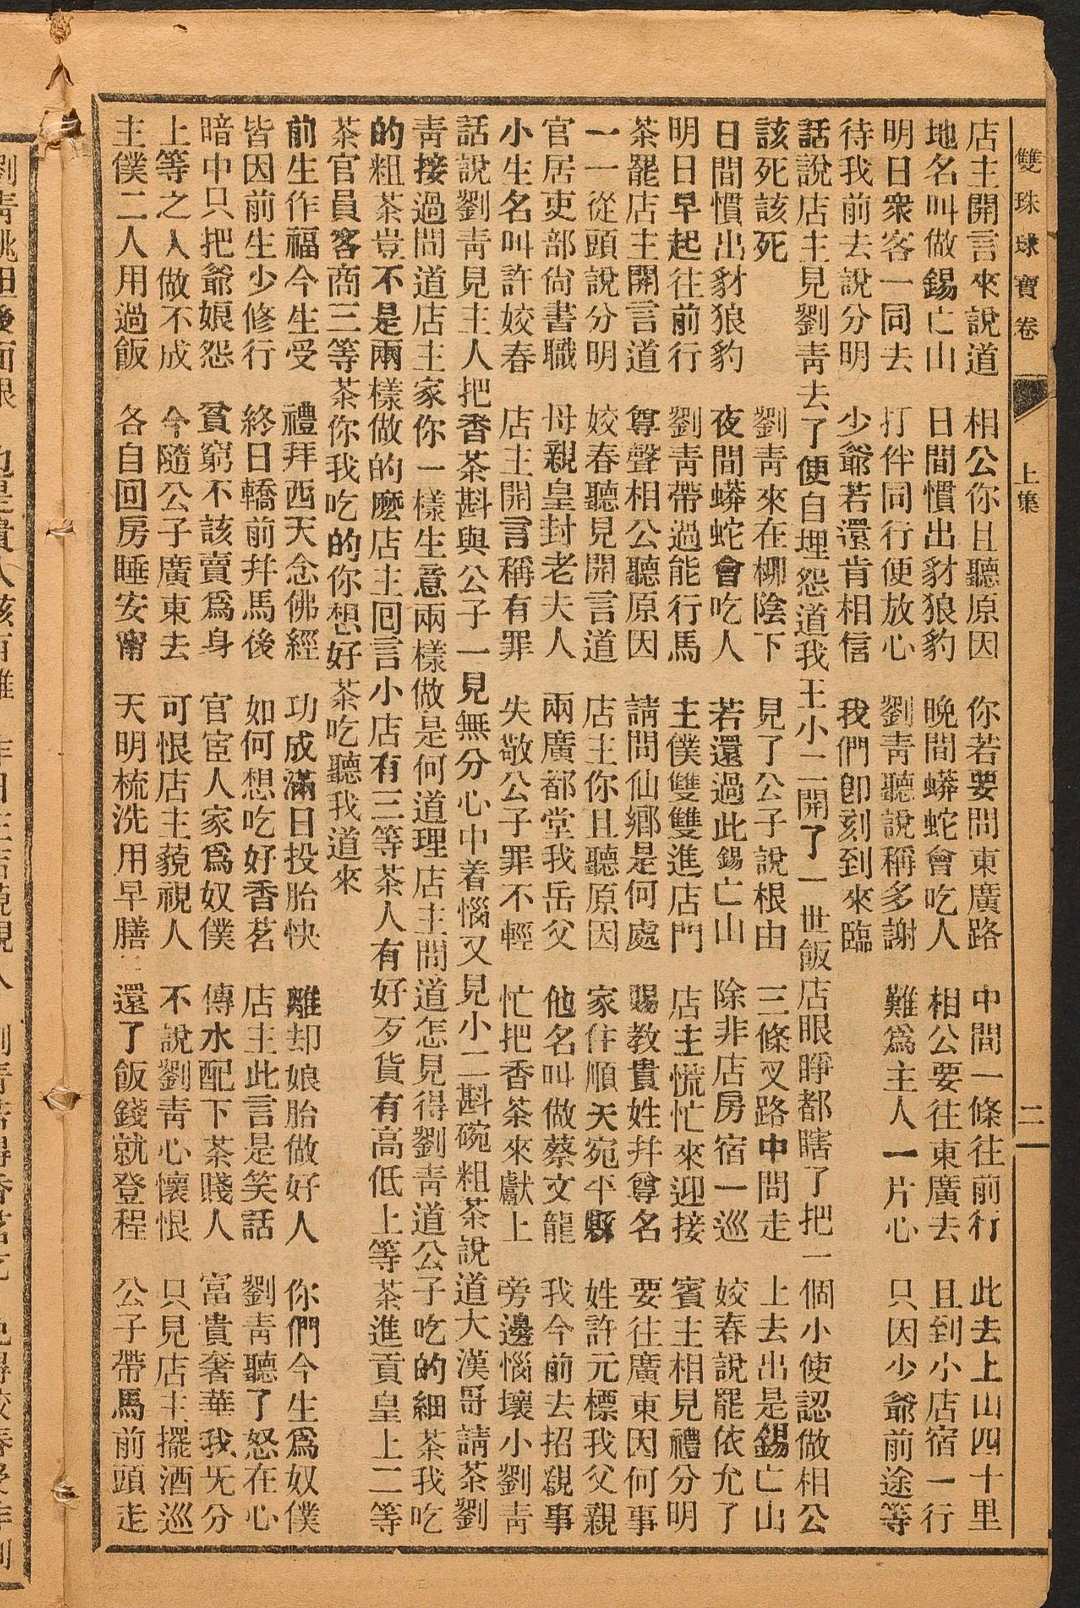 雙珠球寶卷 上集 二
店主開言來說道 相公你且聽原因 你若要問東廣路 中間一條往前行 此去上山四十里
地名叫做錫亡山 日間慣出豺狼豹 晚間蟒蛇會吃人 相公要往東廣去 且到小店宿一行
明日衆客一同去 打伴同行便放心 劉靑聽說稱多謝 難爲主人一片心 只因少爺前途等
待我前去說分明 少爺若還肯相信 我們卽刻到來臨
話說店主見劉靑去了便自埋怨道我王小二開了一世飯店眼睜都瞎了把一個小使認做相公
該死該死 劉靑來在柳陰下 見了公子說根由 三條叉路中間走 上去出是錫亡山
日間慣出豺狼豹 夜間蟒蛇會吃人 若還過此錫亡山 除非店房宿一巡 姣春說罷依允了
明日早起往前行 劉靑帶過能行馬 主僕雙雙進店門 店主慌忙來迎接 賓主相見禮分明
茶罷店主開言道 尊聲相公聽原因 請問仙鄉是何處 賜教貴姓幷尊名 要往廣東因何事
一一從頭說分明 姣春聽見開言道 店主你且聽原因 家住順天宛平縣 姓許元標我父親
官居吏部尙書職 母親皇封老夫人 兩廣都堂我岳父 他名叫做蔡文龍 我今前去招親事
小生名叫許姣春 店主開言稱有罪 失敬公子罪不輕 忙把香茶來獻上 旁邊惱壞小劉靑
話說劉靑見主人把香茶斟與公子一見無分心中着惱又見小二斟碗粗茶說道大漢哥請茶劉
靑接過問道店主家你一樣生意兩樣做是何道理店主問道怎見得劉靑道公子吃的細茶我吃
的粗茶豈不是兩樣做的麽店主回言小店有三等茶人有好歹貨有高低上等茶進貢皇上二等
茶官員客商三等茶你我吃的你想好茶吃聽我道來
前生作福今生受 禮拜西天念佛經 功成滿日投胎快 離却娘胎做好人 你們今生爲奴僕
皆因前生少修行 終日轎前幷馬後 如何想吃好香茗 店主此言是笑話 劉靑聽了怒在心
暗中只把爺娘怨 貧窮不該賣爲身 官宦人家爲奴僕 傳水配下茶賤人 富貴奢華我旡分
上等之人做不成 今隨公子廣東去 可恨店主藐視人 不說劉靑心懷恨 只見店主擺酒巡
主僕二人用過飯 各自回房睡安甯 天明梳洗用早膳 還了飯錢就登程 公子帶馬前頭走